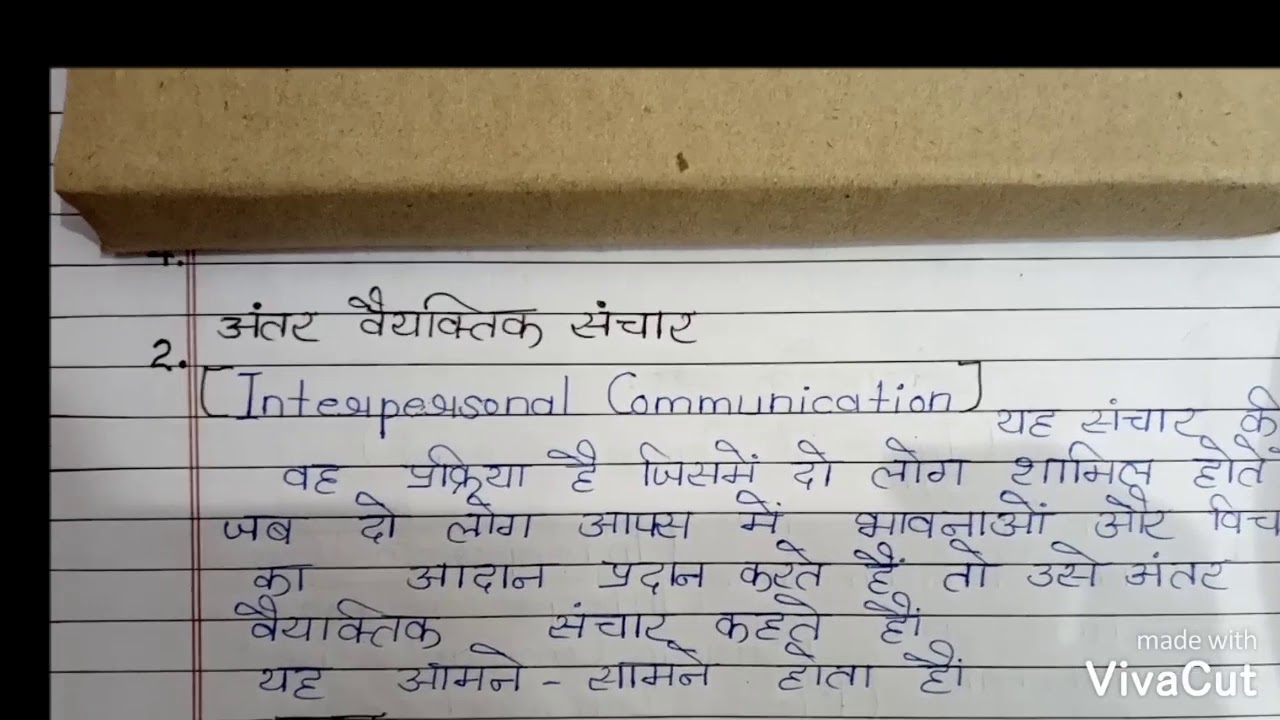 अंतर वैयक्तिक संचार
2.
[Interpersonal Communication]
यह संचार की
वह प्रक्रिया है जिसमें दो लोग शामिल होते
जब दो लोग आपस में भावनाओं और विच
का आदान प्रदान करते हैं तो उसे अंतर
वैयाक्तिक संचार कहते हैं।
यह आमने - सामने होता हैं।
made with
VivaCut